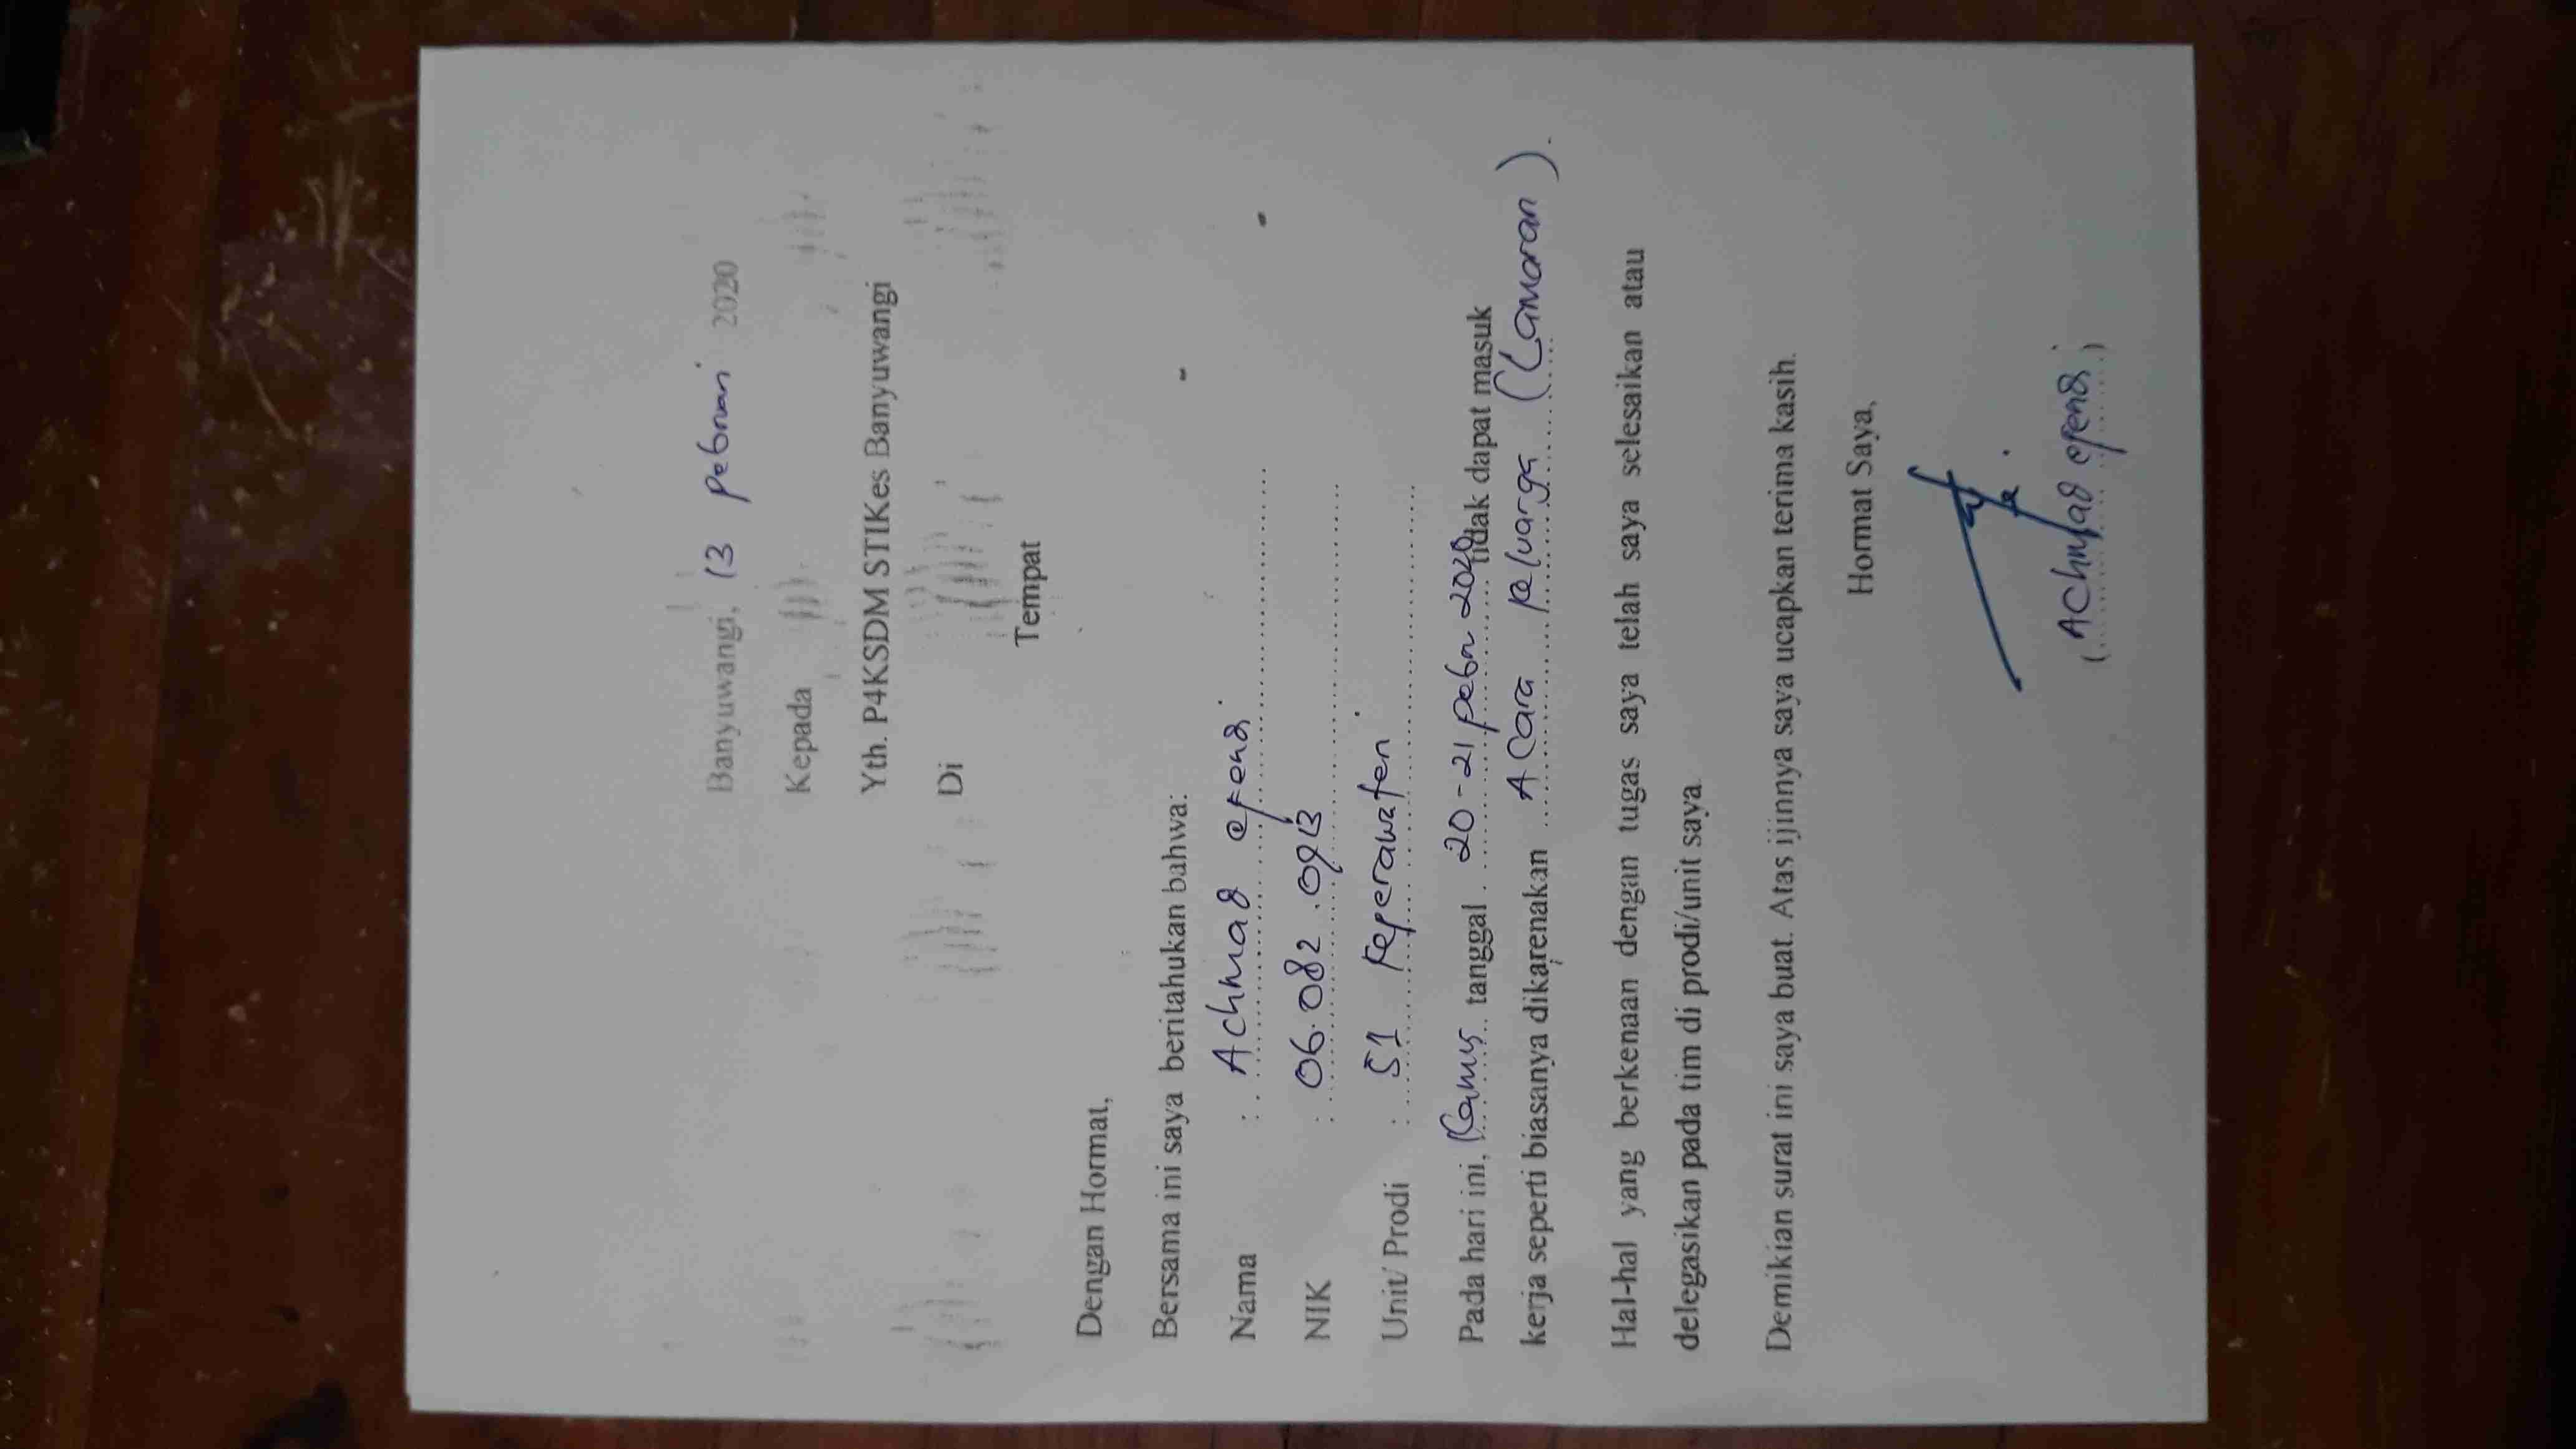 Banyuwangi, 13 pebruari 2020
Kepada
Yth. P4KSDM STIKes Banyuwangi
Di
Tempat
Dengan Hormat,
Bersama ini saya beritahukan bahwa:
Nama : Achmad efendi
NIK : 06.082.0913
Unit/ Prodi : S1 Keperawatan
Pada hari ini, Kamis tanggal 20-21 pebr 2020 tidak dapat masuk
kerja seperti biasanya dikarenakan Acara Keluarga (Lamaran).
Hal-hal yang berkenaan dengan tugas saya telah saya selesaikan atau
delegasikan pada tim di prodi/unit saya.
Demikian surat ini saya buat. Atas ijinnya saya ucapkan terima kasih.
Hormat Saya,
(Achmad efendi)